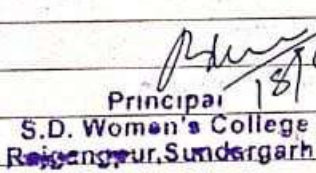 18/
Principal
S.D. Women's College
Rajgangpur, Sundargarh